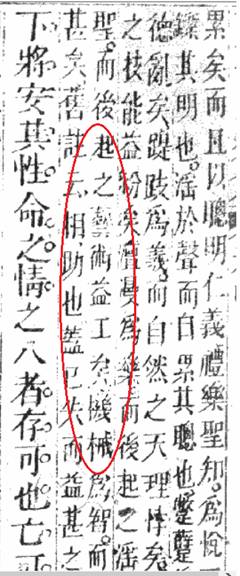 累矣而且以聰明仁義禮樂聖知為悅
鑠其明也滛於聲而自累其聰也蹩躠
德亂矣踶跂為義而自然之天理悖矣
之技能益粉矣澶漫為樂而後起之滛
聖而後起之藝術益工矣機械為智而
甚矣舊註云相助也蓋已失而益甚之
下將安其性命之情之八者存可也亡可